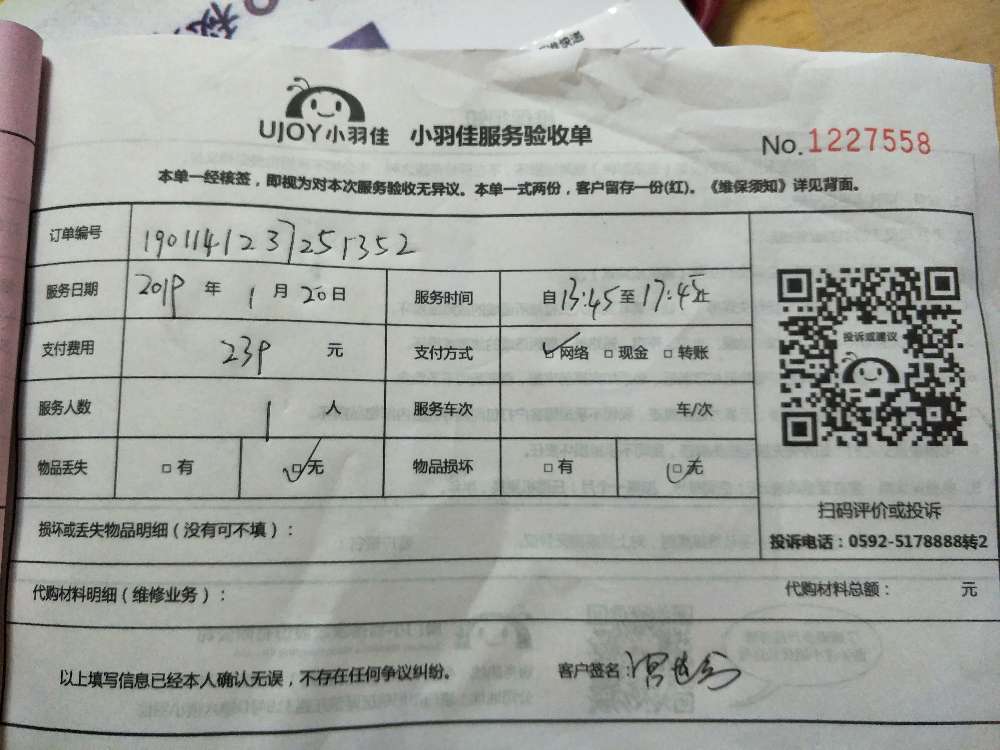 UJOY小羽佳 小羽佳服务验收单
No. 1227558
本单一经核签，即视为对本次服务验收无异议。本单一式两份，客户留存一份(红)。《维保须知》详见背面。
订单编号 1901141237251352
服务日期 2019 年 1 月 20 日 服务时间 自 13:45 至 17:45 止
支付费用 239 元 支付方式 ☑网络 □现金 □转账
服务人数 1 人 服务车次 车/次
物品丢失 □有 ☑无 物品损坏 □有 ☑无
投诉或建议
扫码评价或投诉
投诉电话：0592-5178888转2
损坏或丢失物品明细（没有可不填）：
代购材料明细（维修业务）： 代购材料总额： 元
以上填写信息已经本人确认无误，不存在任何争议纠纷。 客户签名：